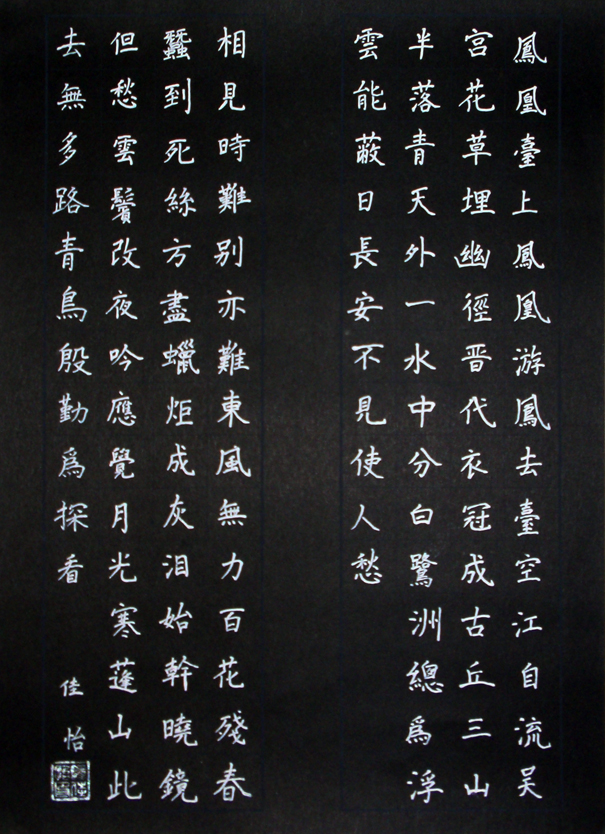 鳳凰臺上鳳凰游鳳去臺空江自流吴
宫花草埋幽徑晋代衣冠成古丘三山
半落青天外一水中分白鷺洲總爲浮
雲能蔽日長安不見使人愁
相見時難别亦難東風無力百花殘春
蠶到死絲方盡蠟炬成灰泪始幹曉鏡
但愁雲鬢改夜吟應覺月光寒蓬山此
去無多路青鳥殷勤爲探看
佳怡